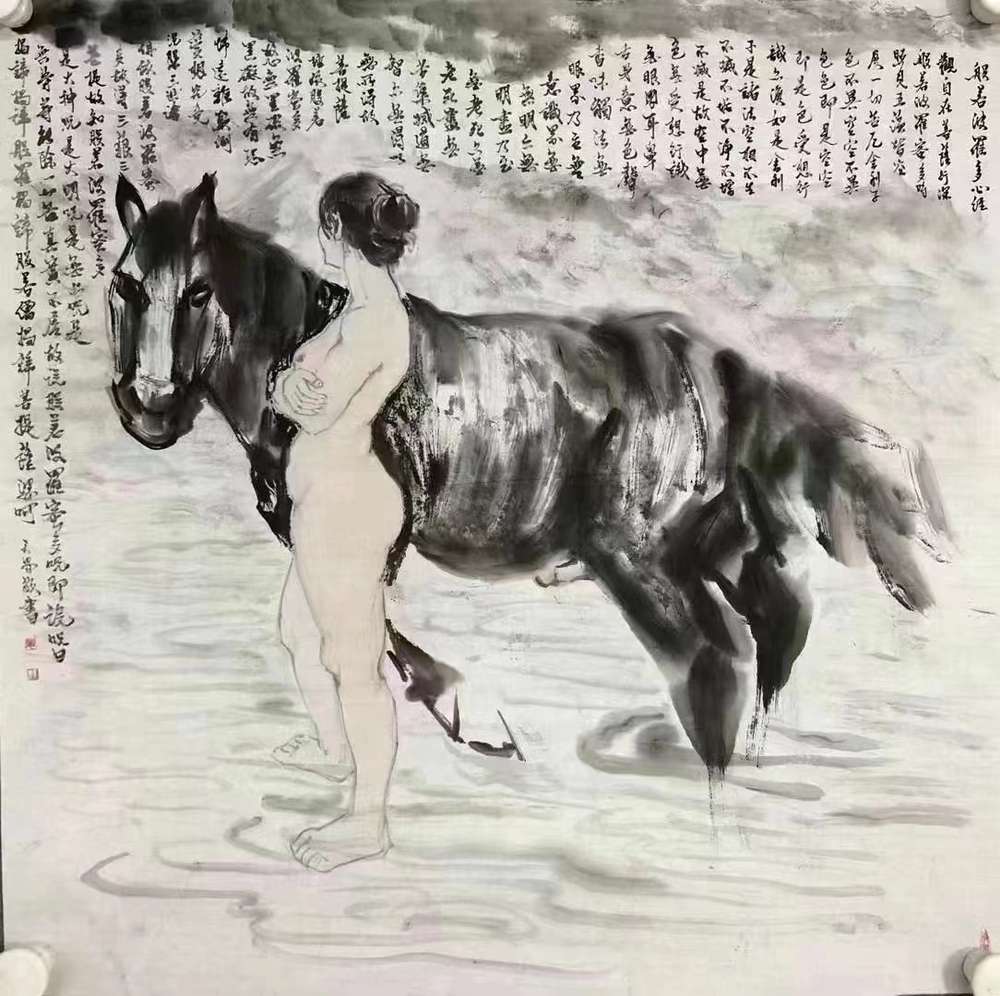 般若波羅多心經
觀自在菩薩行深
般若波羅密多時
照見五蘊皆空
度一切苦厄舍利子
色不異空空不異
色色即是空空
即是色受想行
識亦復如是舍利
子是諸法空相不生
不滅不垢不淨不增
不減是故空中無
色無受想行識
無眼耳鼻
舌身意無色聲
香味觸法無
眼界乃至無
意識界無
無明亦無
明盡乃至
無老死亦無
老死盡無
苦集滅道無
智亦無得以
無所得故
菩提薩
埵依般若
波羅密多
無罣礙
罣礙故無有恐
怖遠離顛倒
夢想究竟
涅槃三世諸
佛依般若波羅密
多故得三藐三
菩提故知般若波羅密多
是大神咒是大明咒是無上咒是
無等等咒能除一切苦真實不虛故説般若波羅密多咒即説咒曰
揭諦揭諦般羅揭諦般若僧揭諦菩提薩婆呵 敬書